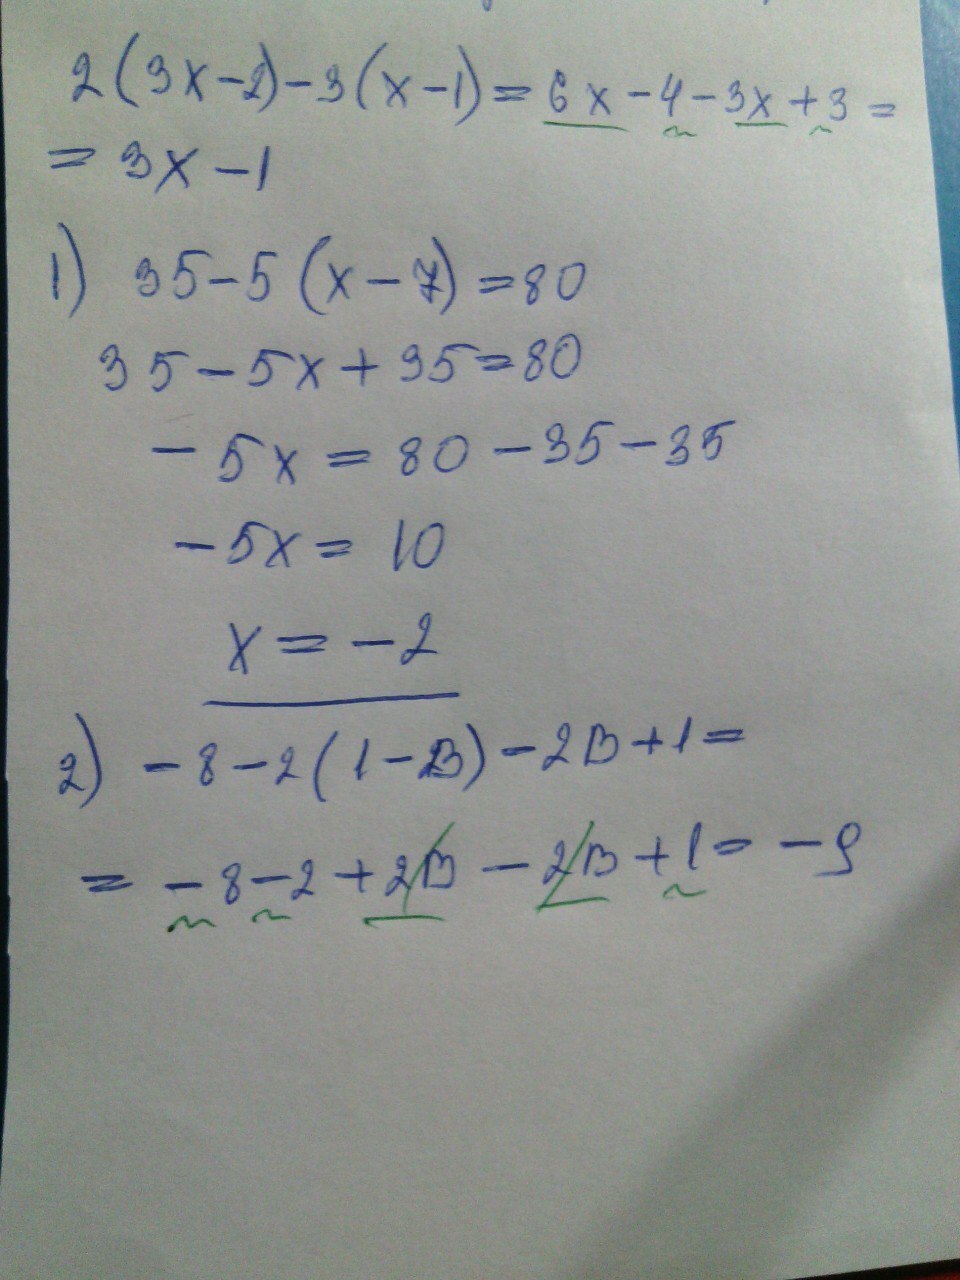 2(3x-2)-3(x-1)=6x-4-3x+3=
=3x-1
1) 35-5(x-7)=80
35-5x+35=80
-5x=80-35-35
-5x=10
x=-2
2) -8-2(1-B)-2B+1=
=-8-2+2B-2B+1=-9